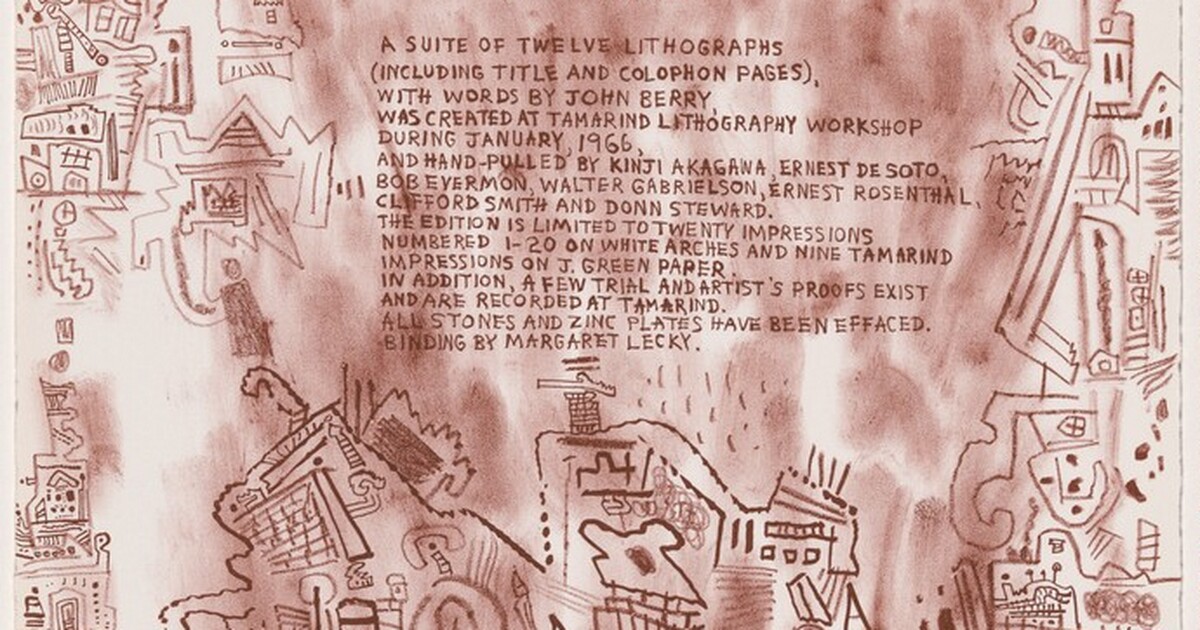 A SUITE OF TWELVE LITHOGRAPHS
(INCLUDING TITLE AND COLOPHON PAGES),
WITH WORDS BY JOHN BERRY,
WAS CREATED AT TAMARIND LITHOGRAPHY WORKSHOP
DURING JANUARY, 1966,
AND HAND-PULLED BY KINJI AKAGAWA, ERNEST DE SOTO,
BOB EVERMON, WALTER GABRIELSON, ERNEST ROSENTHAL,
CLIFFORD SMITH AND DONN STEWARD.
THE EDITION IS LIMITED TO TWENTY IMPRESSIONS
NUMBERED 1-20 ON WHITE ARCHES AND NINE TAMARIND
IMPRESSIONS ON J. GREEN PAPER.
IN ADDITION, A FEW TRIAL AND ARTIST'S PROOFS EXIST
AND ARE RECORDED AT TAMARIND.
ALL STONES AND ZINC PLATES HAVE BEEN EFFACED.
BINDING BY MARGARET LECKY.